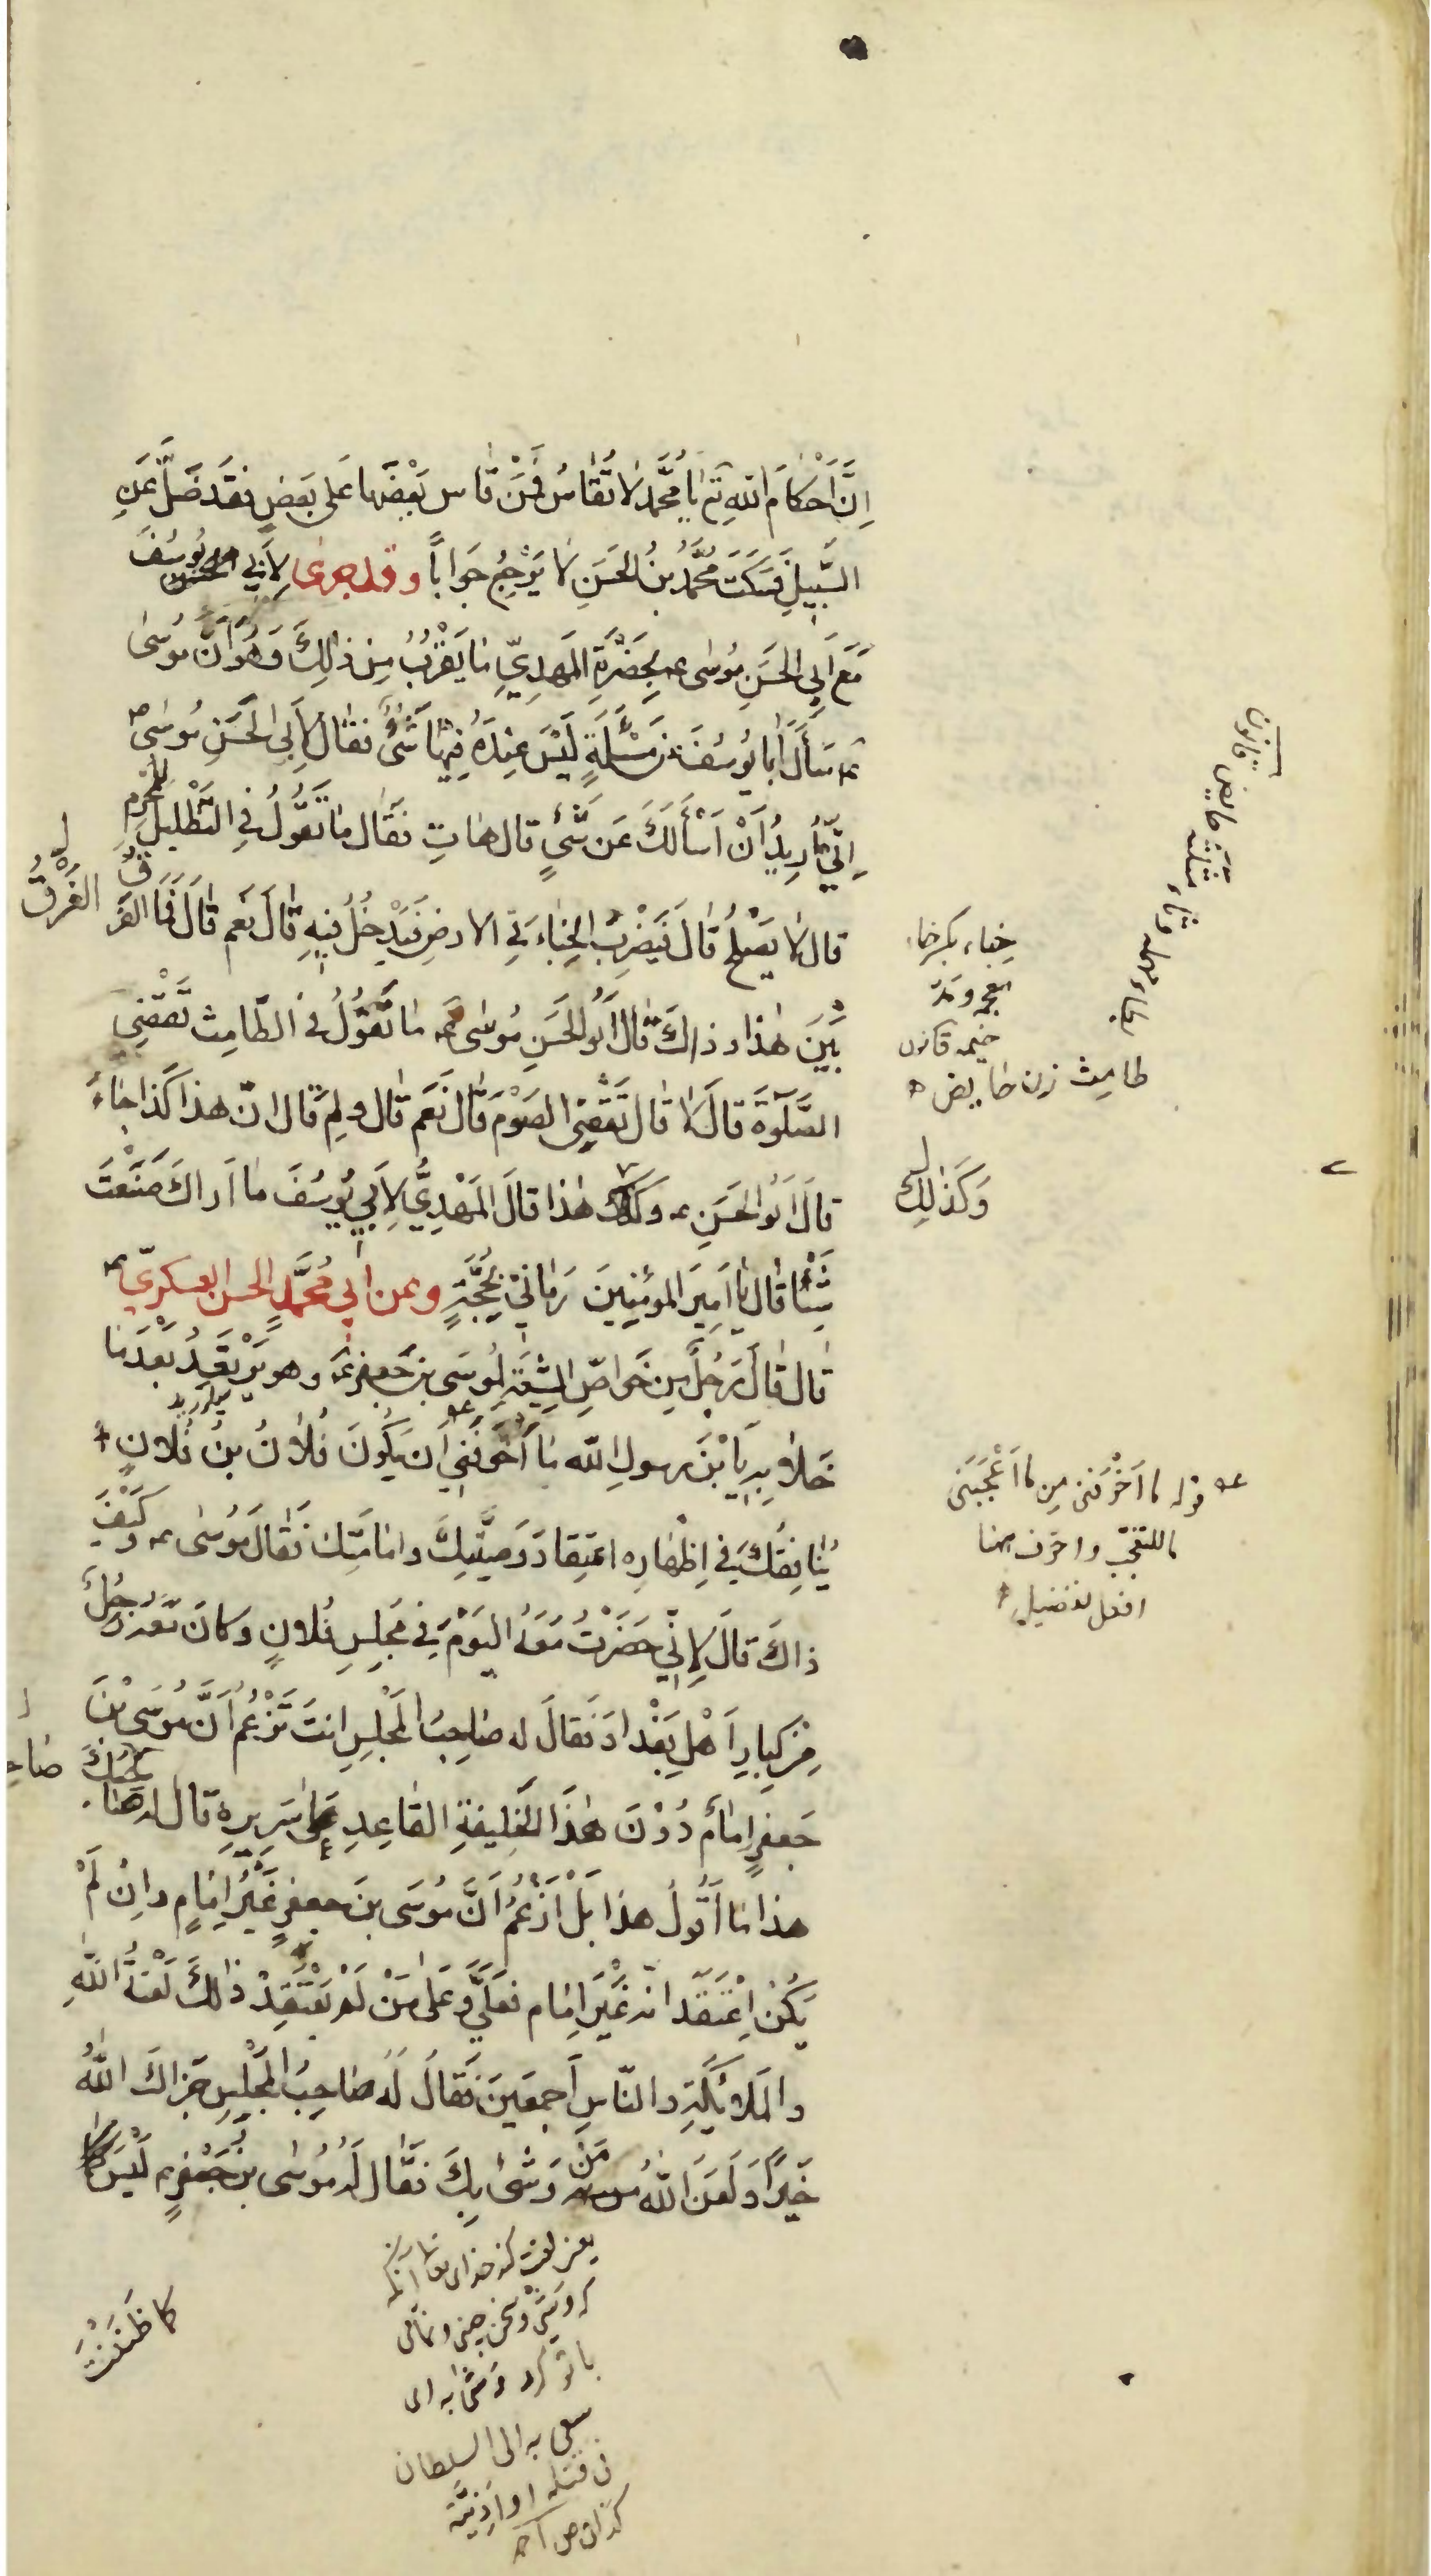 اِنَّ اَحْكامَ اللهِ تع يا مُحَمَّدُ لا تُقاسُ فَمَنْ قاس بَعْضَها عَلى بَعضٍ فقَد ضَلَّ عَنِ
السَّبيلِ فَسَكَتَ مُحَمَّدُ بنُ الحَسَنِ لا يَرْجِعُ جَواباً وقد جرى لاَبي يُوسُفَ
مَعَ اَبي الحَسَنِ مُوسى ع بِحَضْرَةِ المَهدِيِّ ما يَقْرُبُ مِن ذٰلِكَ وَهُوَ اَنَّ مُوسى
ع سَأَلَ اَبا يُوسُفَ عن مَسْئَلَةٍ لَيْسَ عِندَهُ فِيها شَئٌ فقال لاَبي الحَسَنِ مُوسى ع
اِنّي اُريدُ اَنْ اَسْأَلَكَ عَن شَئٍ قال هاتِ فقال ما تَقُولُ في التَّظْليلِ لِلْمُحْرِمِ
قال لا يَصْلُحُ قالَ فَيَضْرِبُ الخِباءَ في الارضِ فَيَدْخُلُ فيهِ قالَ نَعَم قالَ فَمَا الفَرْقُ
الفَرْقُ
بَيْنَ هٰذا وذاكَ قالَ اَبُو الحَسَنِ مُوسى ع ما تَقُولُ في الطّامِث تَقْضِي
الصَّلٰوةَ قالَ لا قال تَقْضِي الصَوْمَ قالَ نَعَم قال ولِمَ قال انّ هذا كَذا جاءَ
قالَ اَبُو الحَسَنِ ع وكذلك هٰذا قالَ المَهْدِيُّ لاَبي يُوسُفَ ما اَراكَ صَنَعْتَ
شَيْئاً قال يا اَميرَ المؤمِنينَ رَماني بِحُجَّةٍ وعن اَبي مُحَمَّدٍ الحسن العسكريّ ع
قال قالَ رَجُلٌ مِن خَواصِّ الشِيعَةِ لِمُوسَى بنِ جَعفرٍ ع وهو يَرْتَعِدُ بَعْدَ ما
خَلا بِهِ يَا بْنَ رسولِ الله ما اَخْوَفَني اَن يَكُونَ فُلانُ بنُ فُلانٍ
يُنافِقُكَ في اِظْهارِه اعتِقادَ وَصِيَّتِكَ وامامَتِكَ فقالَ مُوسى ع وكَيْفَ
ذاكَ قالَ لاِنّي حَضَرْتُ مَعَهُ اليَوْمَ في مَجلِسِ فُلانٍ وكانَ مَعَهُ رَجُلٌ
مِن كِبارِ اَهْلِ بَغْدادَ فقالَ له صاحِبُ المَجْلِسِ انتَ تَزْعُمُ اَنَّ مُوسَى بْنَ
جَعفرٍ اِمامٌ دُوْنَ هٰذَا الخَليفَةِ القاعِدِ على سَريرِهِ قال له
هذا ما اَقُولُ هذا بَلْ اَزْعُمُ اَنَّ مُوسَى بنَ جعفرٍ غَيْرُ اِمامٍ واِنْ لَمْ
يَكُنْ اِعْتَقَد انّه غَيْرَ اِمام فعَلَيَّ وعَلى مَنْ لَمْ يَعْتَقِدْ ذٰلكَ لَعْنَةُ اللّٰهِ
والمَلائكَةِ والنّاسِ اَجمَعينَ فقالَ لَهُ صاحِبُ المَجْلِسِ جَزاكَ اللّٰهُ
خَيْراً ولَعَنَ اللّٰهُ مَنْ وَشى بِكَ فقال لَهُ مُوسى بنُ جَعْفَرٍ ع لَيْسَ
كما ظَنَنْتَ
خِباء بكسر خاء
خيمه قانون
طامِث زن حايض
وَكَذلِكَ
قوله ما اَخْوَفَني مِن ما اَعْجَبَني
ما للتعجّب واخوف هنا
افعل تفضيل
كه وشى وسخن چينى ونمامى
با تو كرد وَشى به اى
سعى به الى السلطان